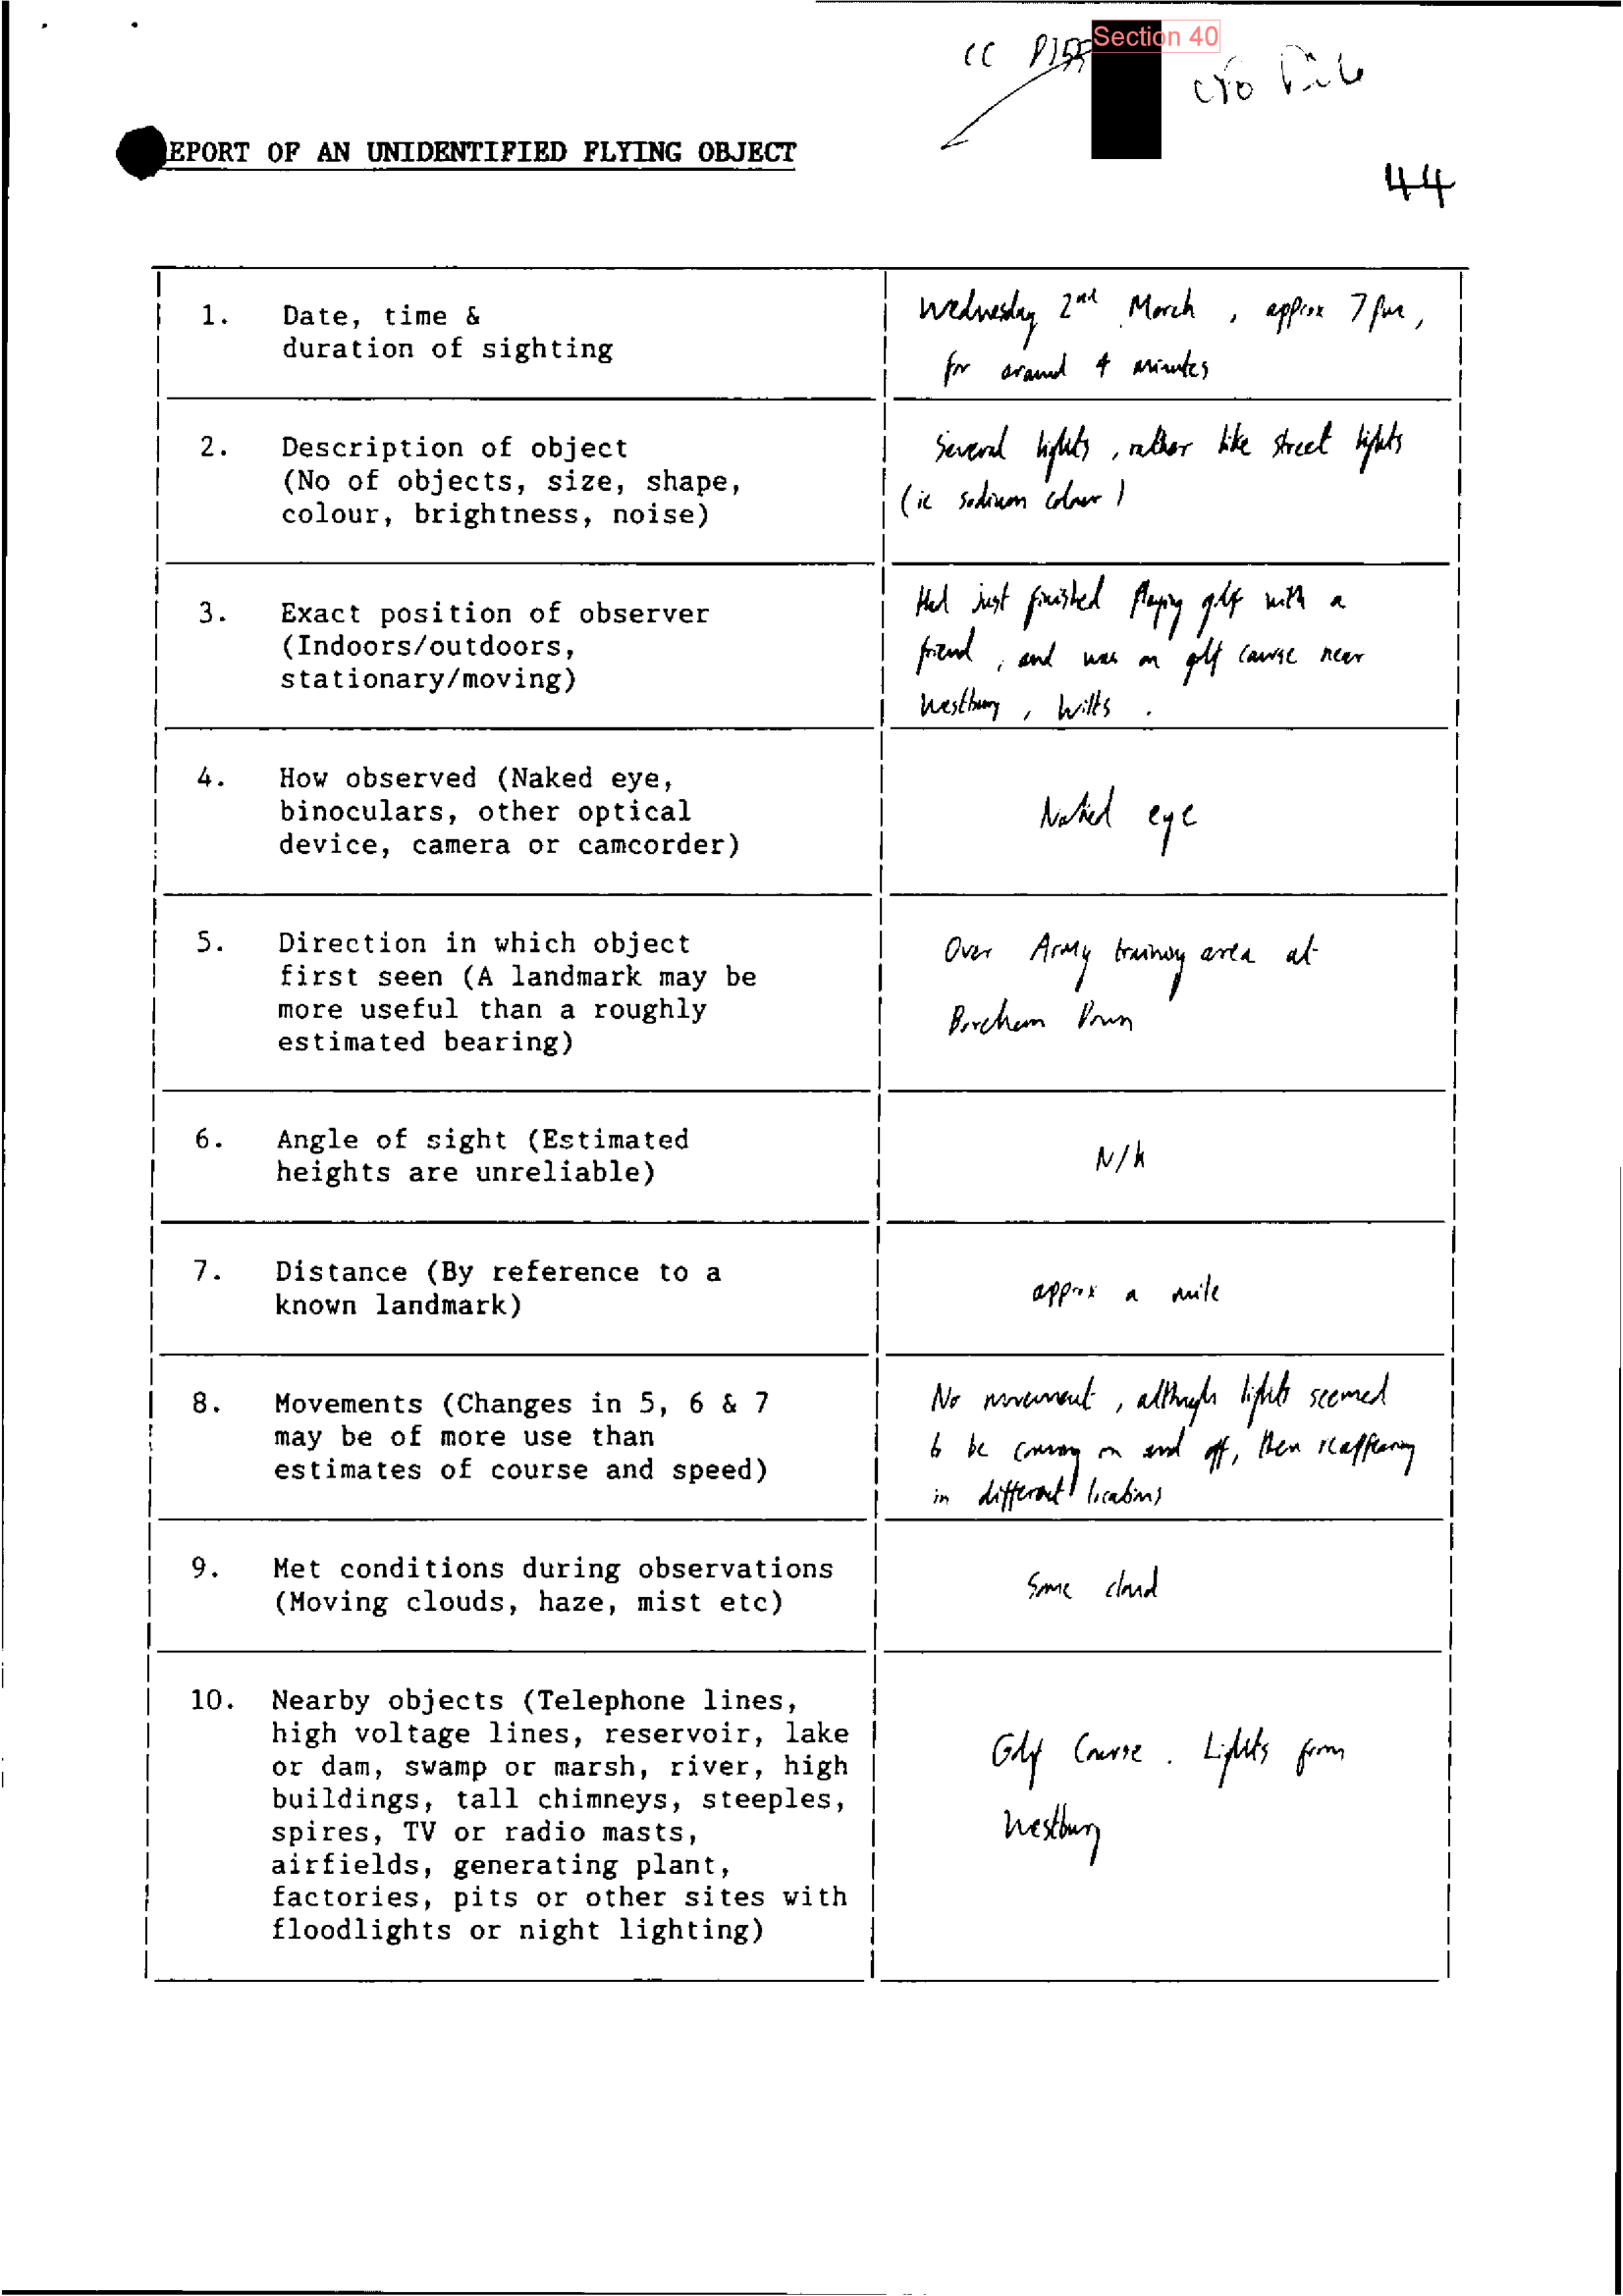 cc
Section 40
UFO File
EPORT OF AN UNIDENTIFIED FLYING OBJECT
44
1. Date, time &
duration of sighting
Wednesday 2nd March, approx 7pm,
for around 4 minutes
2. Description of object
(No of objects, size, shape,
colour, brightness, noise)
Several lights, rather like street lights
(ie sodium colour)
3. Exact position of observer
(Indoors/outdoors,
stationary/moving)
Had just finished playing golf with a
friend, and was on golf course near
Westbury, Wilts.
4. How observed (Naked eye,
binoculars, other optical
device, camera or camcorder)
Naked eye
5. Direction in which object
first seen (A landmark may be
more useful than a roughly
estimated bearing)
Over Army training area at
Boreham Down
6. Angle of sight (Estimated
heights are unreliable)
N/A
7. Distance (By reference to a
known landmark)
approx a mile
8. Movements (Changes in 5, 6 & 7
may be of more use than
estimates of course and speed)
No movement, although lights seemed
to be coming on and off, then reappearing
in different locations
9. Met conditions during observations
(Moving clouds, haze, mist etc)
Some cloud
10. Nearby objects (Telephone lines,
high voltage lines, reservoir, lake
or dam, swamp or marsh, river, high
buildings, tall chimneys, steeples,
spires, TV or radio masts,
airfields, generating plant,
factories, pits or other sites with
floodlights or night lighting)
Golf Course. Lights from
Westbury